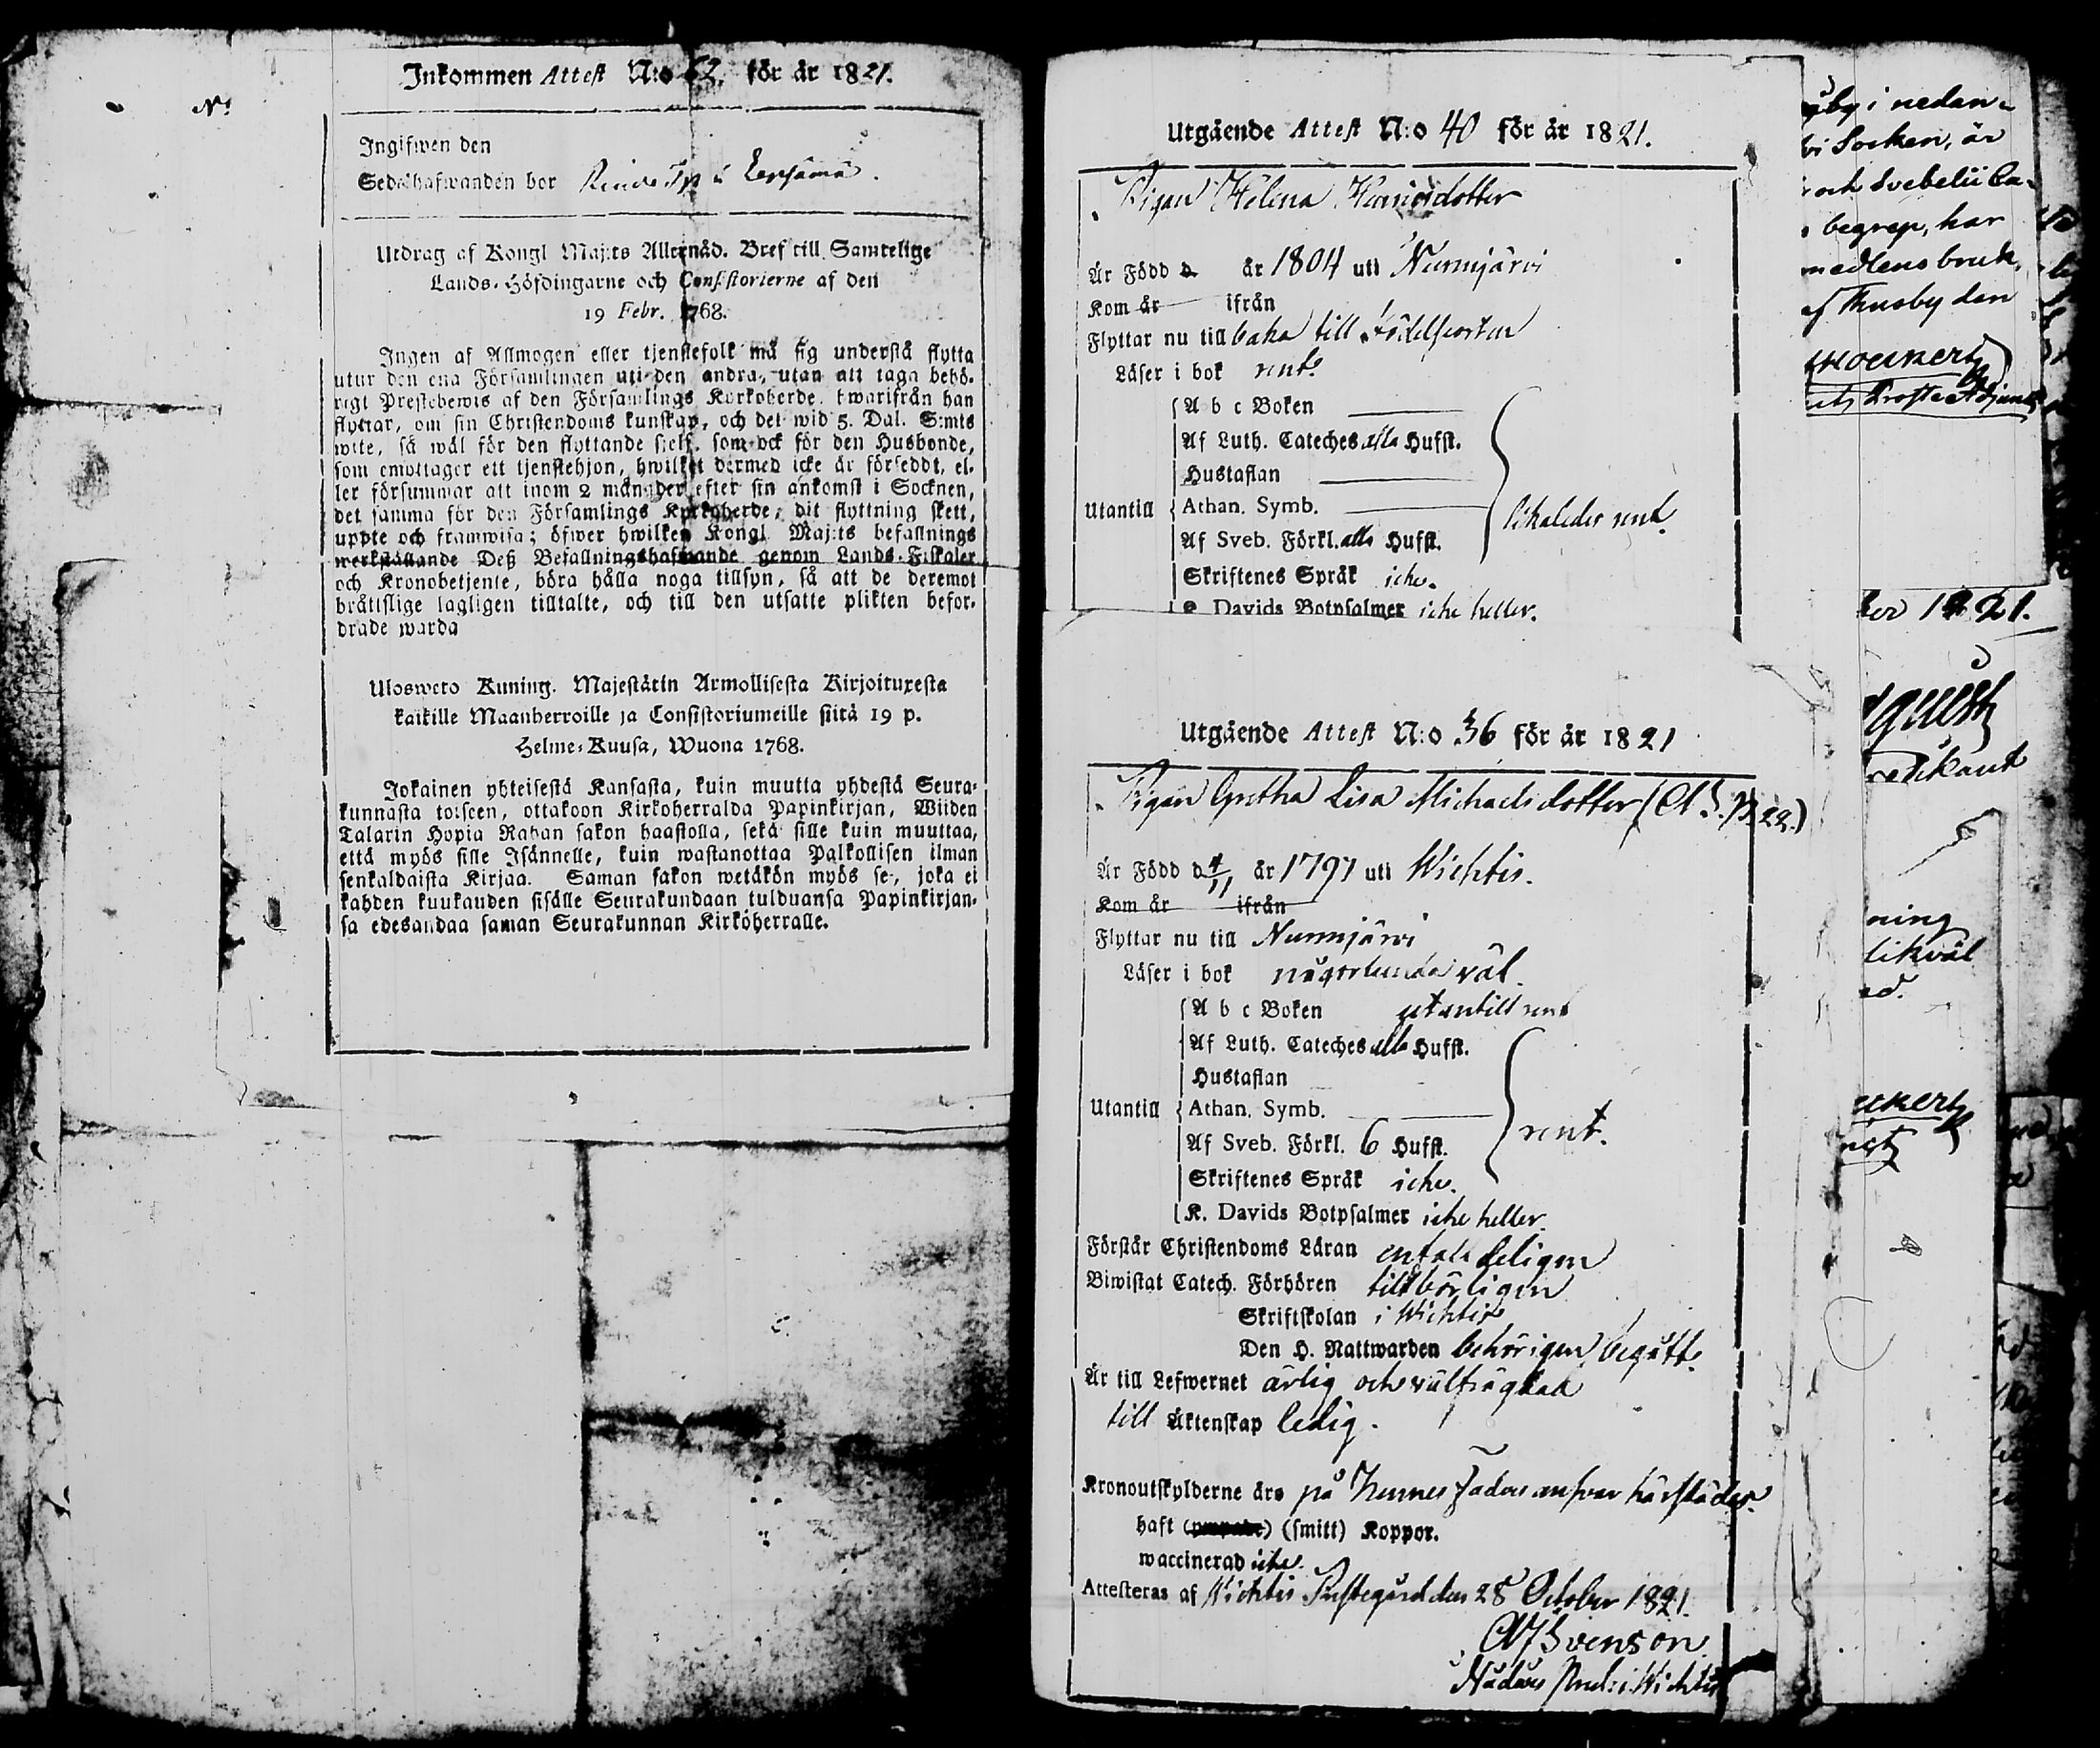 Inkommen Attest N:o 62. för år 1821.
N:
Ingifwen den
Sedelhafwanden bor
Utdrag af Kongl Maj:ts Allernåd. Bref till Samtelige
Lands-Höfdingarne och Consistorierne af den
19 Febr. 1768.
Ingen af Allmogen eller tjenstefolk må sig understå flytta
utur den ena Församlingen uti den andra, utan att taga behö-
rigt Prestebewis af den Församlings Kyrkoherde, hwarifrån han
flyttar, om sin Christendoms kunskap, och det wid 5. Dal. S:mts
wite, så wäl för den flyttande sjelf, som ock för den Husbonde,
som emottager ett tjenstehjon, hwilket dermed icke är försedt, el-
ler försummar att inom 2 månader efter sin ankomst i Socknen,
det samma för den Församlings Kyrkoherde, dit flyttning skett,
uppte och framwisa; öfwer hwilken Kongl Maj:ts befallnings
werkställande Deß Befallningshafwande genom Lands-Fiskaler
och Kronobetjente, böra hålla noga tillsyn, så att de deremot
bråttslige lagligen tilltalte, och till den utsatte plikten befor-
drade warda
Ulosweto Kuning. Majestätin Armollisesta Kirjoituxesta
kaikille Maanherroille ja Consistoriumeille siitä 19 p.
Helme-Kuusa, Wuona 1768.
Jokainen yhteisestä Kansasta, kuin muutta yhdestä Seura-
kunnasta toiseen, ottakoon Kirkoherralda Papinkirjan, Wiiden
Talarin Hopia Rahan sakon haastolla, sekä sille kuin muuttaa,
että myös sille Isännelle, kuin wastanottaa Palkollisen ilman
senkaldaista Kirjaa. Saman sakon wetäkön myös se, joka ei
kahden kuukauden sisälle Seurakundaan tulduansa Papinkirjan-
sa edesandaa saman Seurakunnan Kirkoherralle.
Utgående Attest N:o 40 för år 1821.
Pigan Helena Henricsdotter
Är Född d. år 1804 uti Nurmjärvi
Kom år ifrån
Flyttar nu till baka till födelseorten
Läser i bok rent.
A b c Boken
Af Luth. Cateches alla Hufst.
Hustaflan
Utantill Athan. Symb. likaledes rent.
Af Sveb. Förkl. alla Hufst.
Skriftenes Språk icke.
K. Davids Botpsalmer icke heller.
Utgående Attest N:o 36 för år 1821
Pigan Gretha Lisa Michaelsdotter
Är Född d 4/11 år 1797 uti Wichtis.
Kom år ifrån
Flyttar nu till Nurmjärvi
Läser i bok någorlunda väl.
A b c Boken utantill rent
Af Luth. Cateches alla Hufst.
Hustaflan
Utantill Athan. Symb. rent.
Af Sveb. Förkl. 6 Hufst.
Skriftenes Språk icke.
K. Davids Botpsalmer icke heller.
Förstår Christendoms Läran enfaldeligen
Biwistat Catech. Förhören tillbörligen
Skriftskolan i Wichtis
Den H. Nattwarden behörigen begått.
Är till Lefwernet ärlig och välfrägdad
till Äktenskap ledig.
Kronoutskylderne äro på hennes faders ansvar härstädes.
haft (smitt) Koppor.
waccinerad icke.
Attesteras af Wichtis Prestegård den 28 October 1821.
Svenson
i Wichtis
i nedan-
Socken, är
och Svebelii Ca-
begrep, har
medlens bruk,
af Thusby den
1821.
ning
likväl